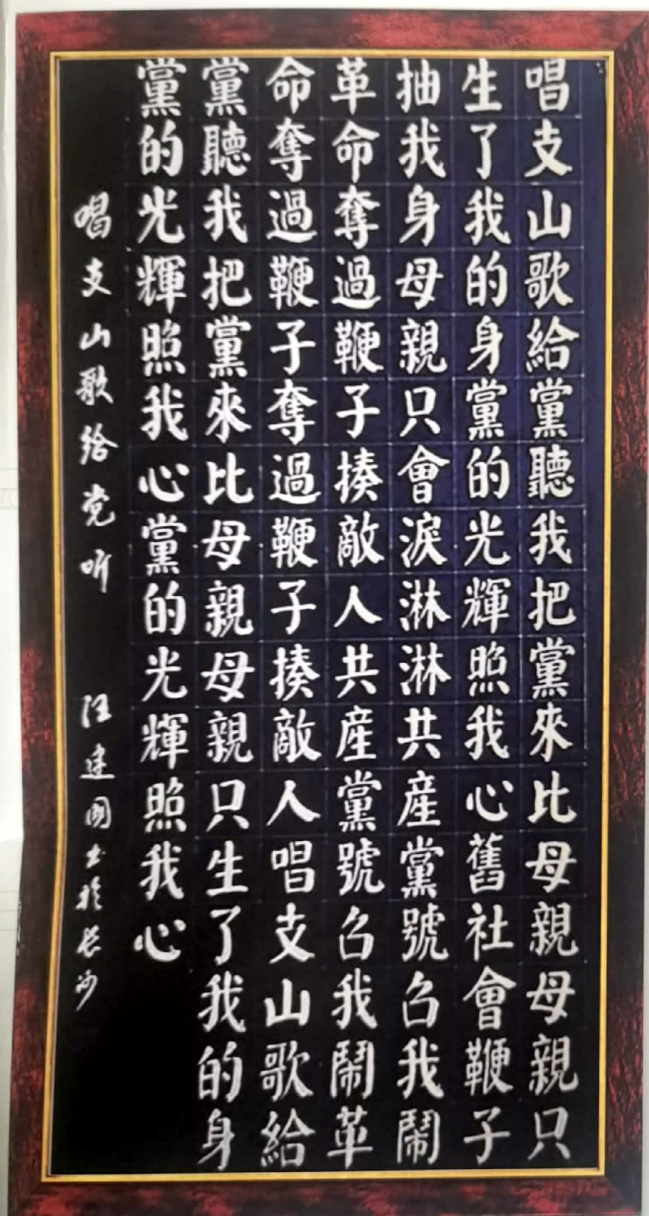 唱支山歌給黨聽我把黨來比母親母親只
生了我的身黨的光輝照我心舊社會鞭子
抽我身母親只會淚淋淋共産黨號召我鬧
革命奪過鞭子揍敵人共産黨號召我鬧革
命奪過鞭子奪過鞭子揍敵人唱支山歌給
黨聽我把黨來比母親母親只生了我的身
黨的光輝照我心黨的光輝照我心
唱支山歌给党听 汪建國书於长沙